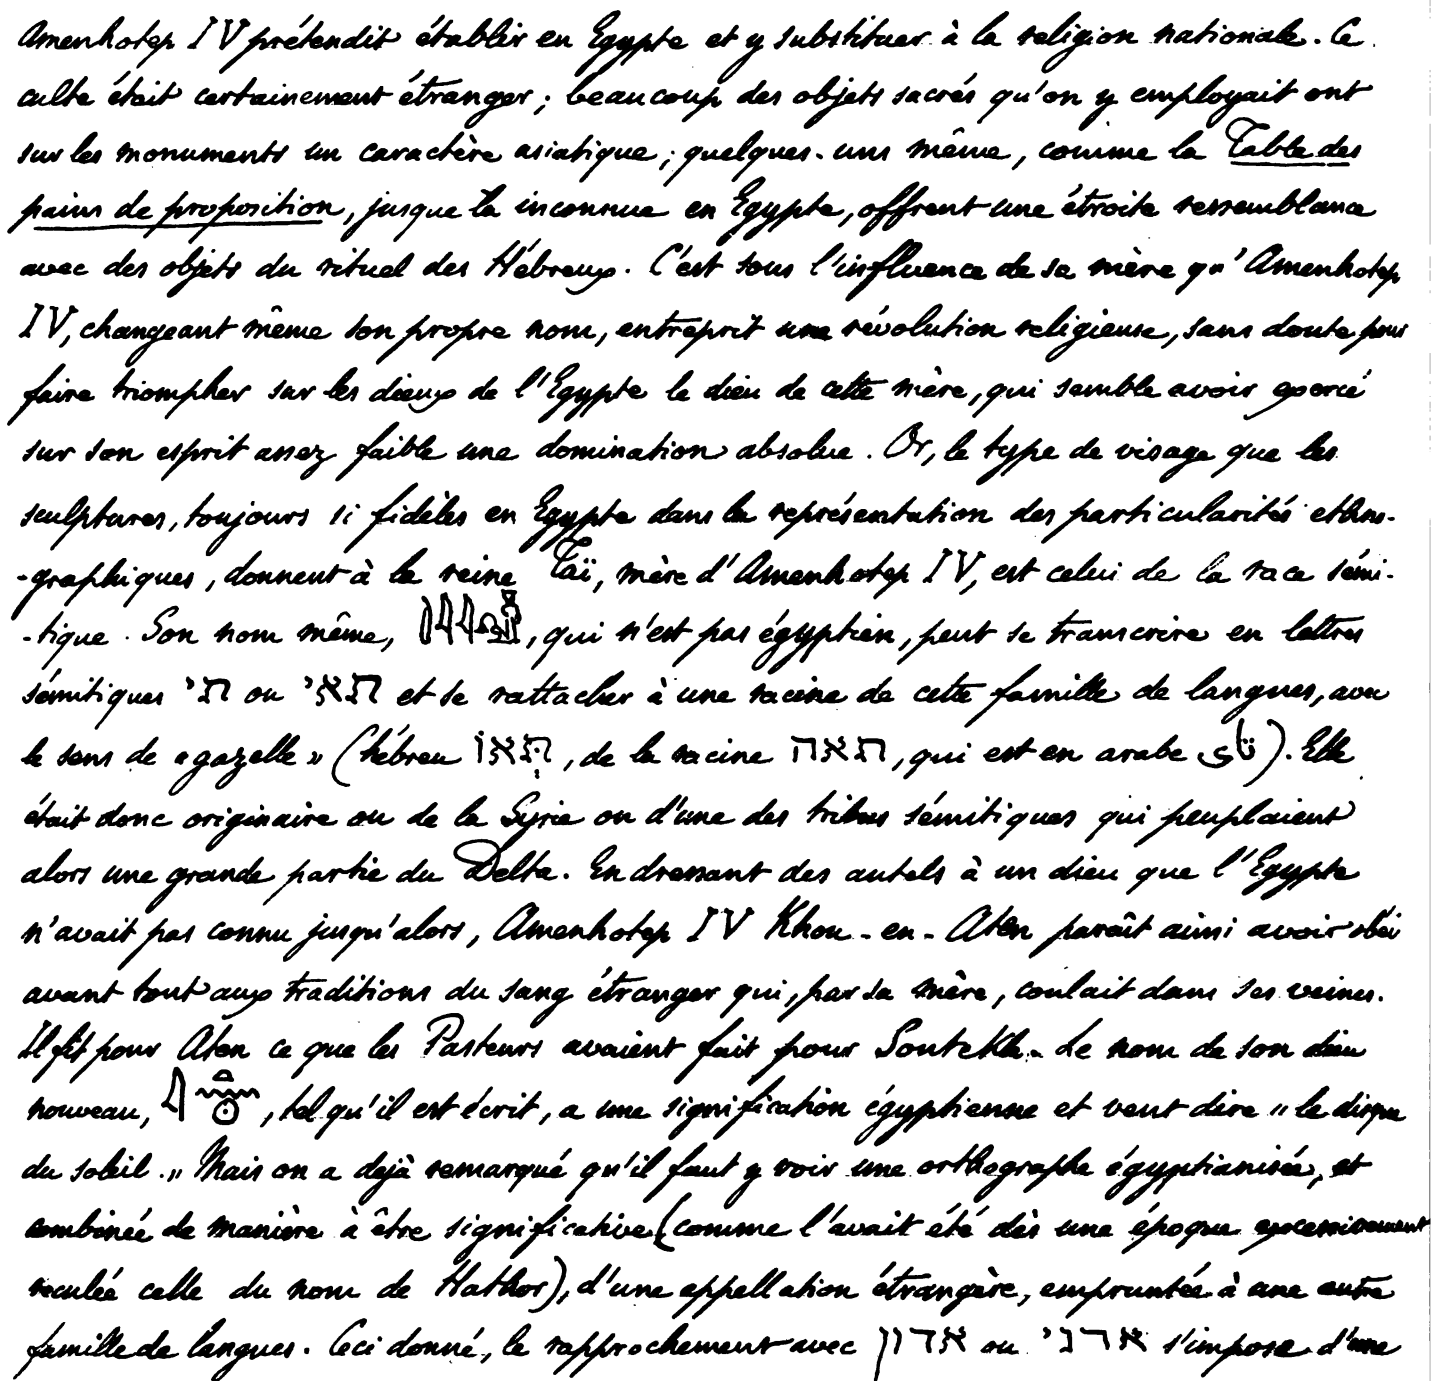 Amenhotep IV prétendit établir en Egypte et y substituer à la religion nationale. Ce
culte était certainement étranger ; beaucoup des objets sacrés qu'on y employait ont
sur les monuments un caractère asiatique ; quelques-uns même, comme la Table des
pains de proposition, jusque là inconnue en Egypte, offrent une étroite ressemblance
avec des objets du rituel des Hébreux. C'est sous l'influence de sa mère qu'Amenhotep
IV, changeant même son propre nom, entreprit une révolution religieuse, sans doute pour
faire triompher sur les dieux de l'Egypte le dieu de cette mère, qui semble avoir exercé
sur son esprit assez faible une domination absolue. Or, le type de visage que les
sculptures, toujours si fidèles en Egypte dans la représentation des particularités ethno-
-graphiques, donnent à la reine Taï, mère d'Amenhotep IV, est celui de la race sémi-
-tique. Son nom même, , qui n'est pas égyptien, peut se transcrire en lettres
sémitiques תי ou תאי et se rattacher à une racine de cette famille de langues, avec
le sens de « gazelle » (hébreu תְּאוֹ, de la racine תאה, qui est en arabe ). Elle
était donc originaire ou de la Syrie ou d'une des tribus sémitiques qui peuplaient
alors une grande partie du Delta. En dressant des autels à un dieu que l'Egypte
n'avait pas connu jusqu'alors, Amenhotep IV Khou-en-Aten paraît ainsi avoir obéi
avant tout aux traditions du sang étranger qui, par sa mère, coulait dans ses veines.
Il fit pour Aten ce que les Pasteurs avaient fait pour Soutekh. Le nom de son dieu
nouveau, , tel qu'il est écrit, a une signification égyptienne et veut dire « le disque
du soleil. » Mais on a dejà remarqué qu'il faut y voir une orthographe égyptianisée, et
combinée de manière à être significative (comme l'avait été dès une époque excessivement
reculée celle du nom de Hathor), d'une appellation étrangère, empruntée à une autre
famille de langues. Ceci donné, le rapprochement avec אדון ou אדני s'impose d'une